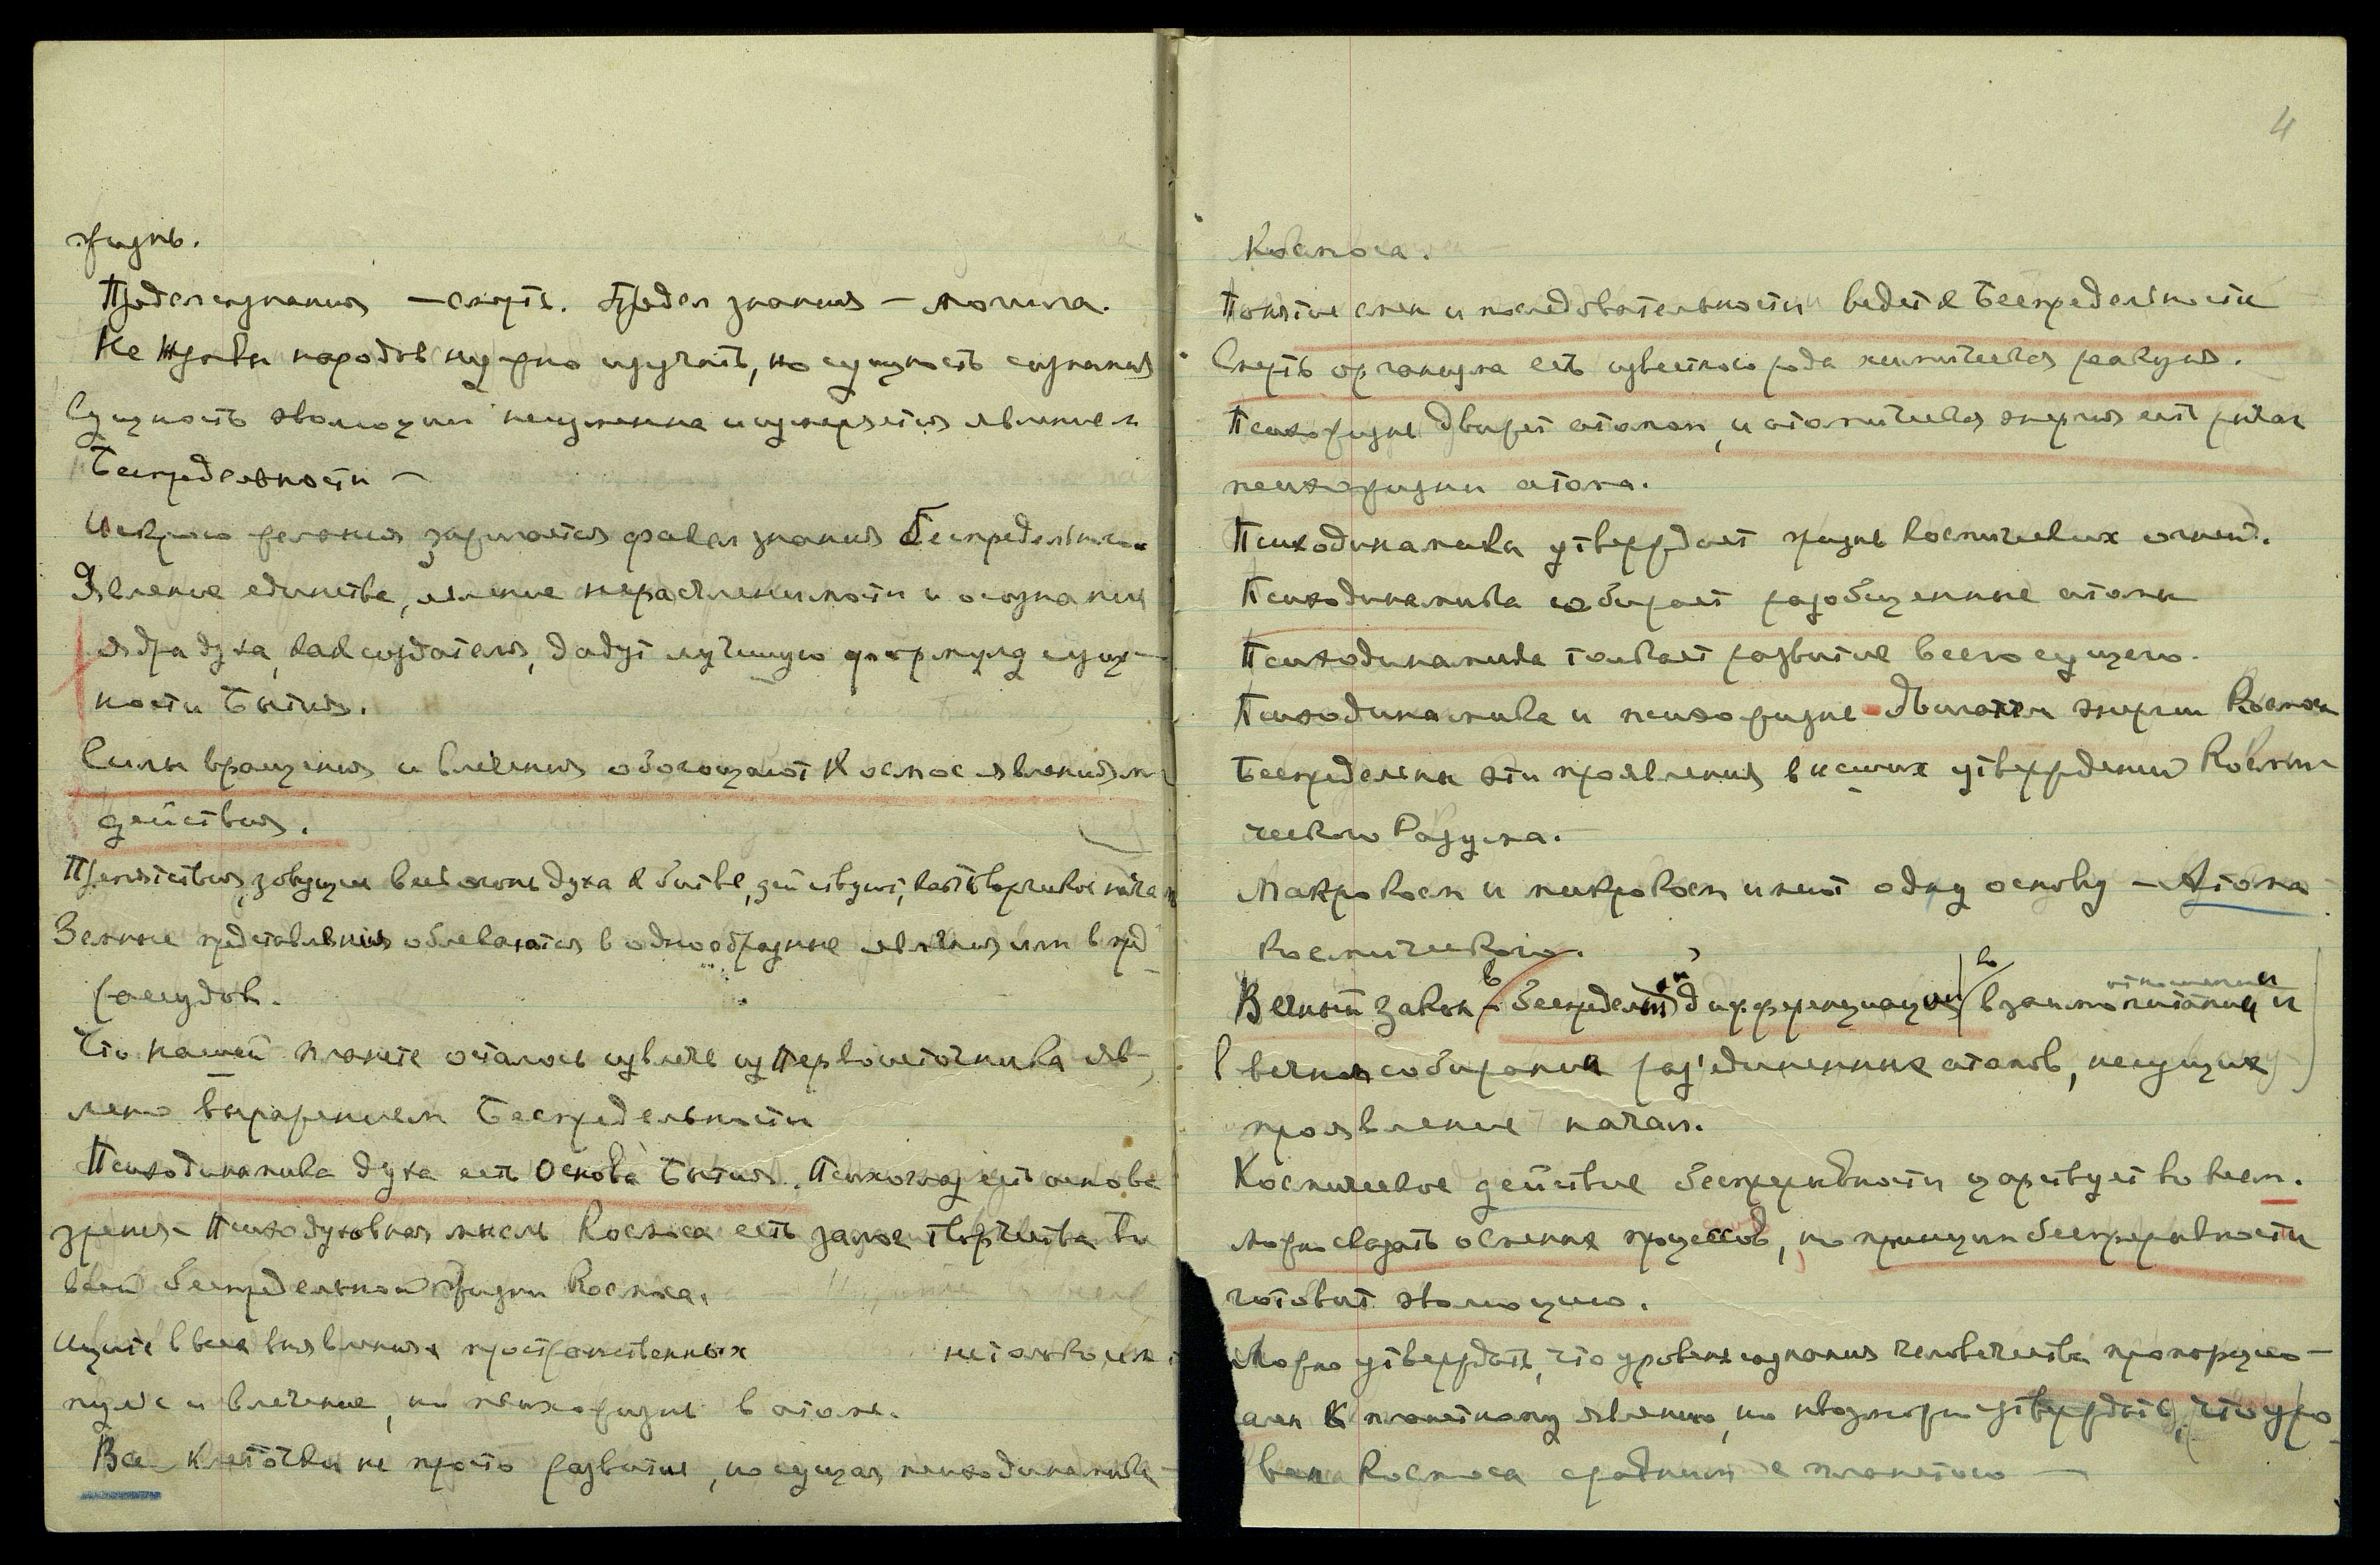 жизнь.
Предел сознания — смерть. Предел знания — могила.
Не нравы народов нужно изучать, но сущность сознания
Сущность эволюции неизменна и измеряется явлением
Беспредельности —
Искрою желания зажигается факел знания Беспредельности
Явление единства, явление нерасчленимости и осознания
ядра духа, как создателя, дадут лучшую формулу сущ-
ности Бытия.
Силы вращения и влечения обогащают Космос явлениями
действия.
Препятствия, зовущие весь огонь духа к битве, действуют, как творческое начало
Земные представления облекаются в однообразные явления или в пред
рассудок.
Что нашей планете осталось извлечь из Первоисточника яв-
лено выражением Беспредельности
Психодинамика духа есть Основа Бытия. Психоглаз есть основа
зрения. Психодуховная мысль Космоса есть залог творчества во
всей беспредельной жизни Космоса.
Ищите в всех выявлениях пространственных не только им
пульс и влечение, но психожизнь в атоме.
Все клеточки не просто развитие, но сущая психодинамика
4
Космоса.
Понятие смен и последовательности ведет к Беспредельности
Смерть организма есть известного рода химическая реакция.
Психожизнь движет атомом, и атомическая энергия есть рычаг
психожизни атома.
Психодинамика утверждает жизнь космических огней.
Психодинамика собирает разобщенные атомы
Психодинамика толкает развитие всего сущего.
Психодинамика и психожизнь двигатели энергии Космоса
Беспредельны эти проявления высших утверждений Косми-
ческого Разума.
Макрокосм и микрокосм имеют одну основу — Атома
Космического.
Вечный закон в беспредельной дифференциации во взаимопитании и
отношении
в вечном собирании разъединенных атомов, несущих
проявление начал.
Космическое действие беспрерывности царствует во всем.
Можно сказать о смене процессов, но принцип беспрерывности
готовит эволюцию.
Можно утверждать, что уровень сознания человечества пропорцио-
ален к планетному явлению, но невозможно утверждать, что уро
вень Космоса сроднит с планетою —